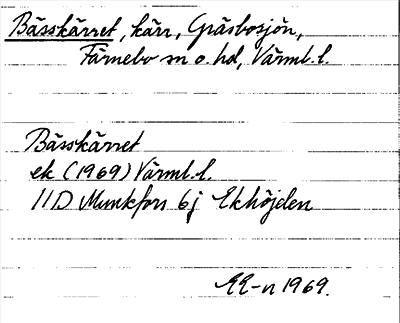 Bässkärret, kärr, Gräsbosjön,
Färnebo sn o. hd, Värml. l.
Bässkärret
ek (1969) Värml. l.
11D Munkfors 6j Ekhöjden
RR-n 1969.